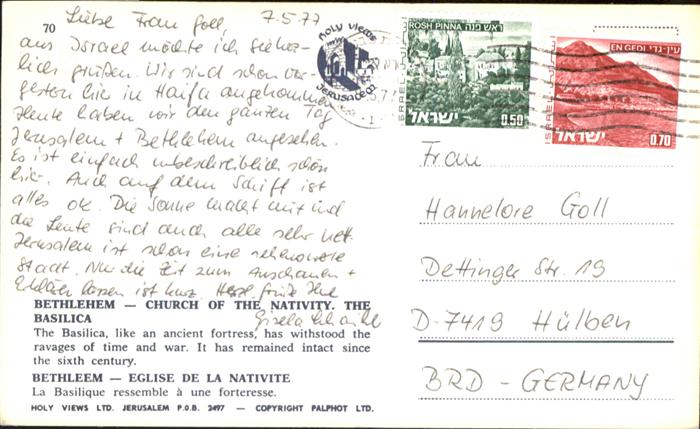 70
7.5.77
Liebe Frau Goll,
aus Israel möchte ich Sie herz-
lich grüßen. Wir sind schon vor-
gestern hier in Haifa angekommen.
Heute haben wir den ganzen Tag
Jerusalem + Bethlehem angesehen.
Es ist einfach unbeschreiblich schön
hier. Auch auf dem Schiff ist
alles ok. Die Sonne macht mit und
die Leute sind auch alle sehr nett.
Jerusalem ist schon eine sehenswerte
Stadt. Nur die Zeit zum Anschauen +
Erklären lassen ist kurz. Herzl. Grüße Ihre
Gisela
BETHLEHEM — CHURCH OF THE NATIVITY. THE
BASILICA
The Basilica, like an ancient fortress, has withstood the
ravages of time and war. It has remained intact since
the sixth century.
BETHLEEM — EGLISE DE LA NATIVITE
La Basilique ressemble à une forteresse.
HOLY VIEWS LTD. JERUSALEM P.O.B. 2497 — COPYRIGHT PALPHOT LTD.
HOLY VIEWS
JERUSALEM
ROSH PINNA ראש פנה
ISRAEL
ישראל
0.50
EN GEDI עין-גדי
ISRAEL
ישראל
0.70
Frau
Hannelore Goll
Dettinger Str. 19
D-7419 Hülben
BRD - GERMANY